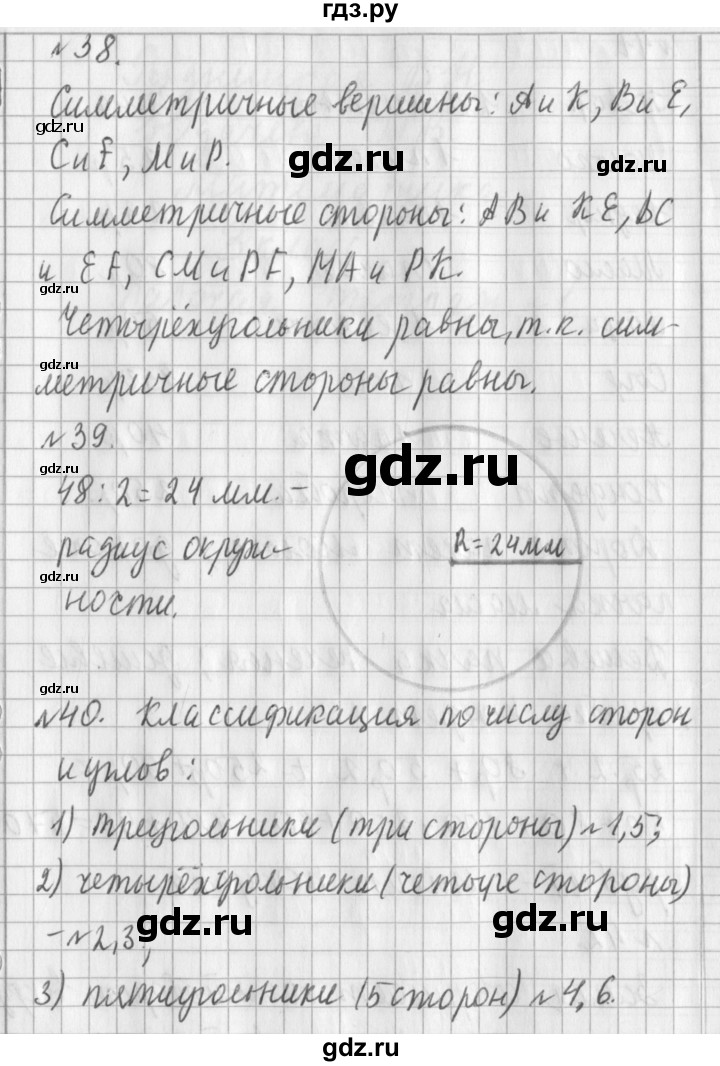 гдз.ру
№38.
Симметричные вершины: A и K, B и E,
gdz.ru
C и F, M и P.
gdz.ru
gdz.ru
Симметричные стороны: AB и KE, BC
и EF, CM и PF, MA и PK.
gdz.ru
Четырёхугольники равны, т.к. сим-
gdz.ru
метричные стороны равны.
№39.
gdz.ru
48:2=24 мм. –
R=24мм
радиус окруж-
gdz.ru
ности.
gdz.ru
№40. Классификация по числу сторон
и углов:
1) треугольники (три стороны) №1,5;
2) четырёхугольники (четыре стороны)
gdz.ru
gdz.ru
– №2,3;
3) пятиугольники (5 сторон) №4, 6.
gdz.ru
gdz.ru